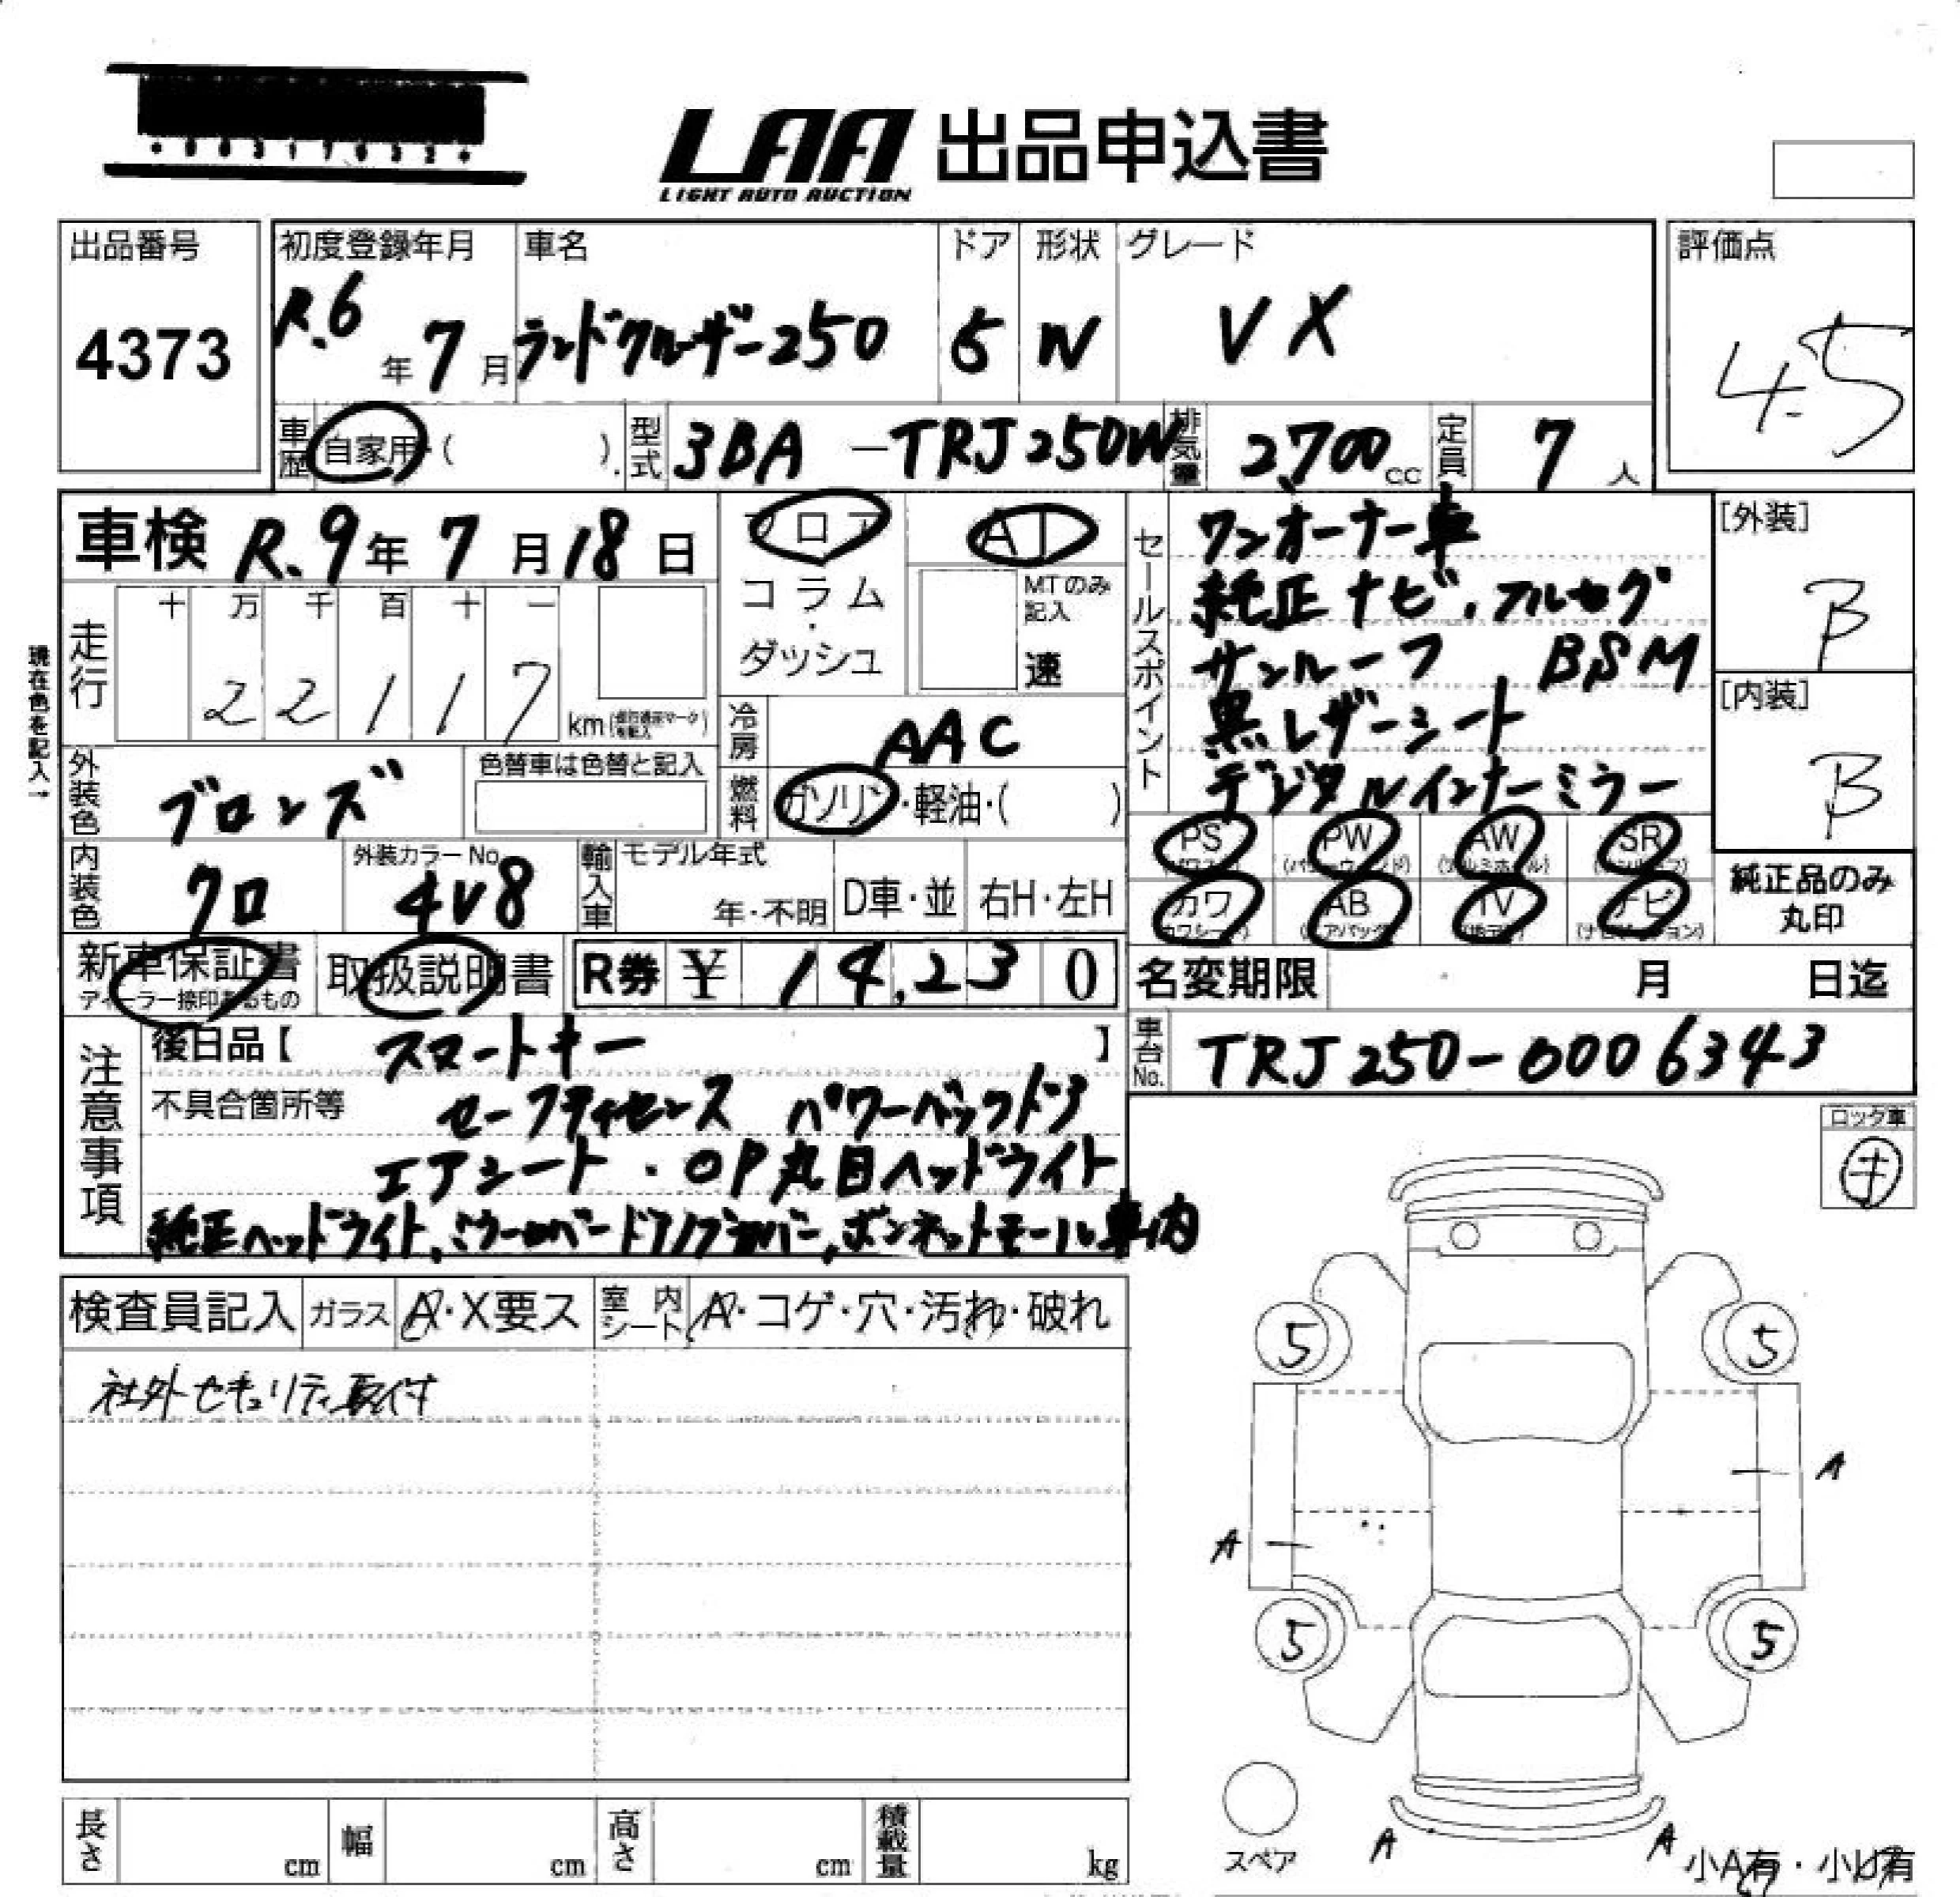 LAA 出品申込書
LIGHT AUTO AUCTION
出品番号
4373
初度登録年月
R.6年 7月
車名
ランドクルーザー250
ドア
5
形状
W
グレード
VX
評価点
4.5
車歴 自家用・( )
型式 3BA-TRJ250W
排気量 2,700cc
定員 7人
車検 R.9年 7月 18日
現在色を記入→
走行
十 万 千 百 十 一
2 2 1 1 7
km
フロア
コラム
・
ダッシュ
AT
MTのみ
記入
速
冷房 AAC
燃料 ガソリン・軽油・( )
セールスポイント
ワンオーナー車
純正ナビ、フルセグ
サンルーフ BSM
黒レザーシート
デジタルインナーミラー
[外装]
B
[内装]
B
外装色 ブロンズ
色替車は色替と記入
内装色 クロ
外装カラーNo.
4V8
輸入車
モデル年式
年・不明
D車・並
右H・左H
PS (パワステ)
PW (パワーウィンド)
AW (アルミホイル)
SR (サンルーフ)
カワ (カワシート)
AB (エアバッグ)
TV (地デジ)
ナビ (ナビゲーション)
純正品のみ
丸印
新車保証書
ディーラー捺印あるもの
取扱説明書
R券 ¥ 14,230
名変期限 月 日迄
注意事項
後日品【 スマートキー 】
不具合箇所等
セーフティセンス パワーバックドア
エアシート・OP丸目ヘッドライト
純正ヘッドライト、ミラーカバードアノブカバー、ボンネットモール車内
車台No. TRJ250-0006343
ロック車
キ
検査員記入
ガラス A・X要ス
室内シート A・コゲ・穴・汚れ・破れ
社外セキュリティ取付
5
5
A
A
5
5
A
A
スペア
小A有・小U有
長さ cm
幅 cm
高さ cm
積載量 kg